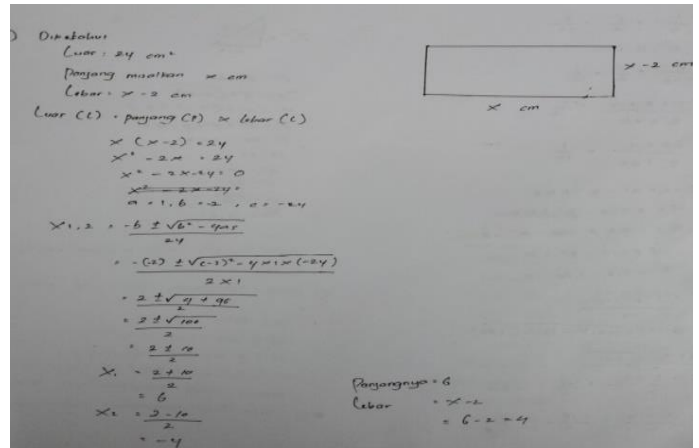 ) Diketahui
Luas : 24 cm²
Panjang misalkan x cm
Lebar = x - 2 cm
x - 2 cm
x cm
Luas (L) = panjang (P) x lebar (L)
x (x-2) = 24
x² - 2x = 24
x² - 2x - 24 = 0
x² - 2x - 24 =
a = 1, b = -2, c = -24
X1,2 = -b ± √b² - 4ac
2a
= -(-2) ± √(-2)² - 4x1x(-24)
2 x 1
= 2 ± √4 + 96
2
= 2 ± √100
2
= 2 ± 10
2
X1 = 2 + 10
2
= 6
X2 = 2 - 10
2
= -4
Panjangnya = 6
Lebar = x - 2
= 6 - 2 = 4